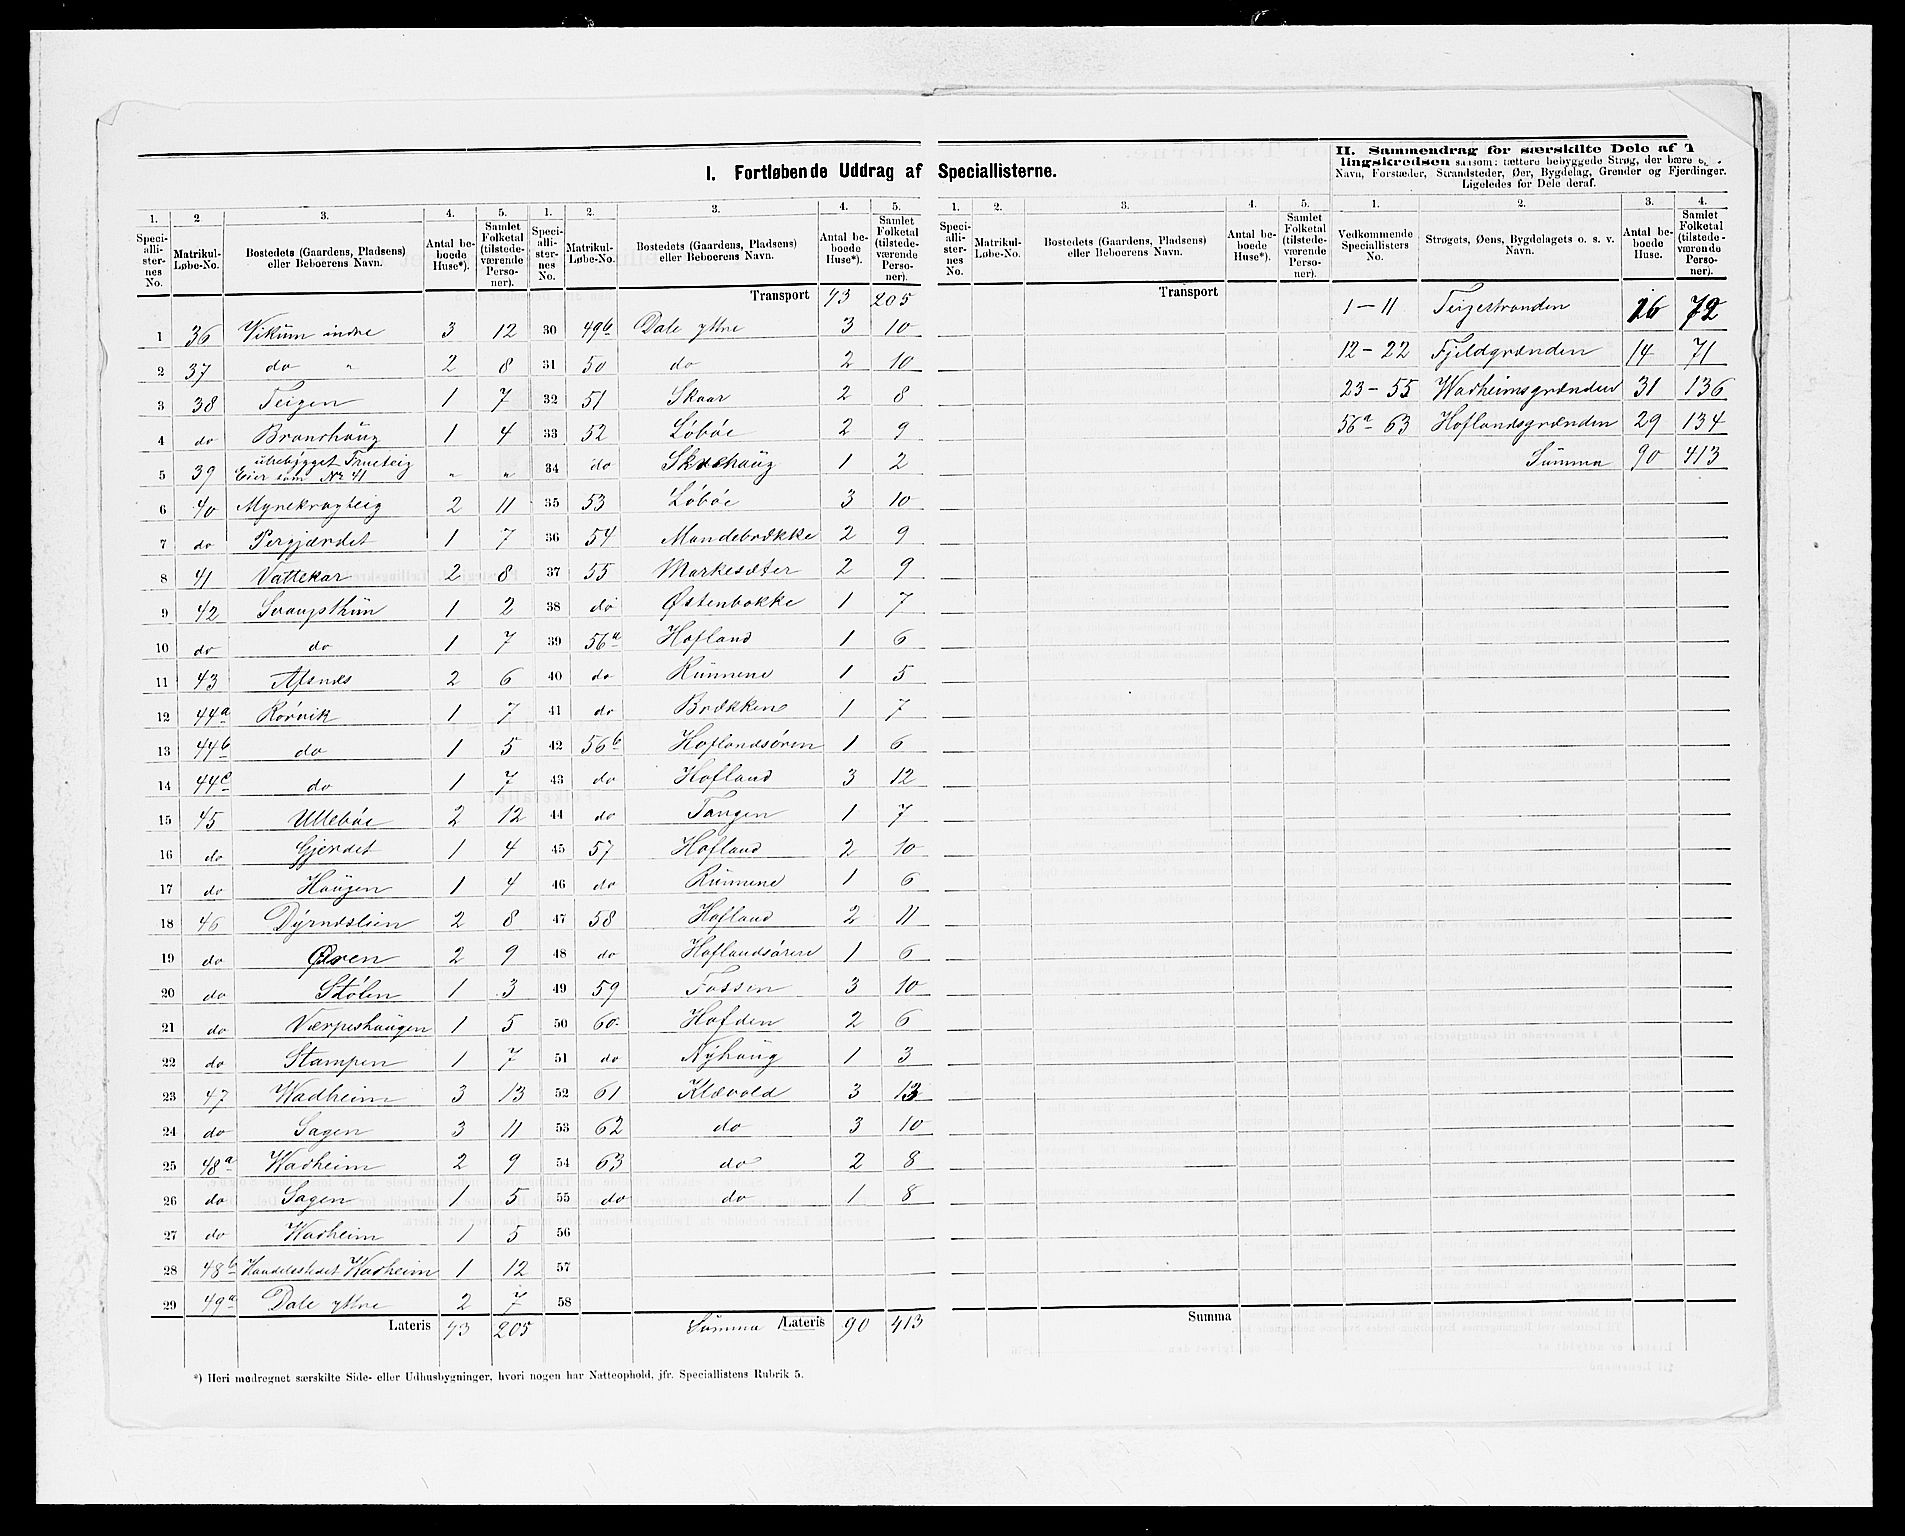 I. Fortløbende Uddrag af Speciallisterne.
II. Sammendrag for særskilte Dele af T
lingskredsen saasom: tættere bebyggede Strøg, der bære e
Navn, Forstæder, Strandsteder, Øer, Bygdelag, Grender og Fjerdinger.
Ligeledes for Dele deraf.
1. 2 3. 4. 5. 1. 2. 3. 4. 5. 1. 2. 3. 4. 5. 1. 2. 3. 4.
Speci-alli-ster-nes No. Matrikul-Løbe-No. Bostedets (Gaardens, Pladsens) eller Beboerens Navn. Antal be-boede Huse*). Samlet Folketal (tilstede-værende Perso-ner).
Speci-alli-ster-nes No. Matrikul-Løbe-No. Bostedets (Gaardens, Pladsens) eller Beboerens Navn. Antal be-boede Huse*). Samlet Folketal (tilstede-værende Perso-ner).
Speci-allis-ster-nes No. Matrikul-Løbe-No. Bostedets (Gaardens, Pladsens) eller Beboerens Navn. Antal be-boede Huse*). Samlet Folketal (tilstede-værende Perso-ner).
Vedkommende Speciallisters No. Strøgets, Øens, Bygdelagets o. s. v. Navn. Antal be-boede Huse. Samlet Folketal (tilstede-værende Perso-ner).
1 36 Vikum indre 3 12
2 37 do " 2 8
3 38 Teigen 1 7
4 do Brandhaug 1 4
5 39 ubebygget Trueteig Eier som No 41 " "
6 40 Myrekragteig 2 11
7 do Pergjærdet 1 7
8 41 Vattekar 2 8
9 42 Svaupthun 1 2
10 do do 1 7
11 43 Afsnæs 2 6
12 44a Rørvik 1 7
13 44b do 1 5
14 44c do 1 7
15 45 Ullebøe 2 12
16 do Gjerdet 1 4
17 do Haugen 1 4
18 46 Dyrndslien 2 8
19 do Øren 2 9
20 do Stølen 1 3
21 do Værpeshaugen 1 5
22 do Stampen 1 7
23 47 Wadheim 3 13
24 do Sagen 3 11
25 48a Wadheim 2 9
26 do Sagen 1 5
27 do Wadheim 1 5
28 48b Handelsstedet Wadheim 1 12
29 49a Dale yttre 2 7
Lateris 43 205
Transport 43 205
30 49b Dale yttre 3 10
31 50 do 2 10
32 51 Skaar 2 8
33 52 Løbøe 2 9
34 do Skrehaug 1 2
35 53 Løbøe 3 10
36 54 Mandebrække 2 9
37 55 Markesæter 2 9
38 do Østenbakke 1 7
39 56a Hofland 1 6
40 do Runnene 1 5
41 do Brækken 1 7
42 56b Hoflandsøren 1 6
43 do Hofland 3 12
44 do Tangen 1 7
45 57 Hofland 2 10
46 do Runnene 1 6
47 58 Hofland 2 11
48 do Hoflandsøren 1 6
49 59 Fossen 3 10
50 60 Hofden 2 6
51 do Nyhaug 1 3
52 61 Klævold 3 13
53 62 do 3 10
54 63 do 2 8
55 do do 1 8
56
57
58
Summa Lateris 90 413
Transport
Summa
1 – 11 Teigestranden 16 72
12 – 22 Fjeldgrænden 14 71
23 – 55 Wadheimsgrænden 31 136
56a – 63 Hoflandsgrænden 29 134
Summa 90 413
*) Heri medregnet særskilte Side- eller Udhusbygninger, hvori nogen har Natteophold, jfr. Speciallistens Rubrik 5.